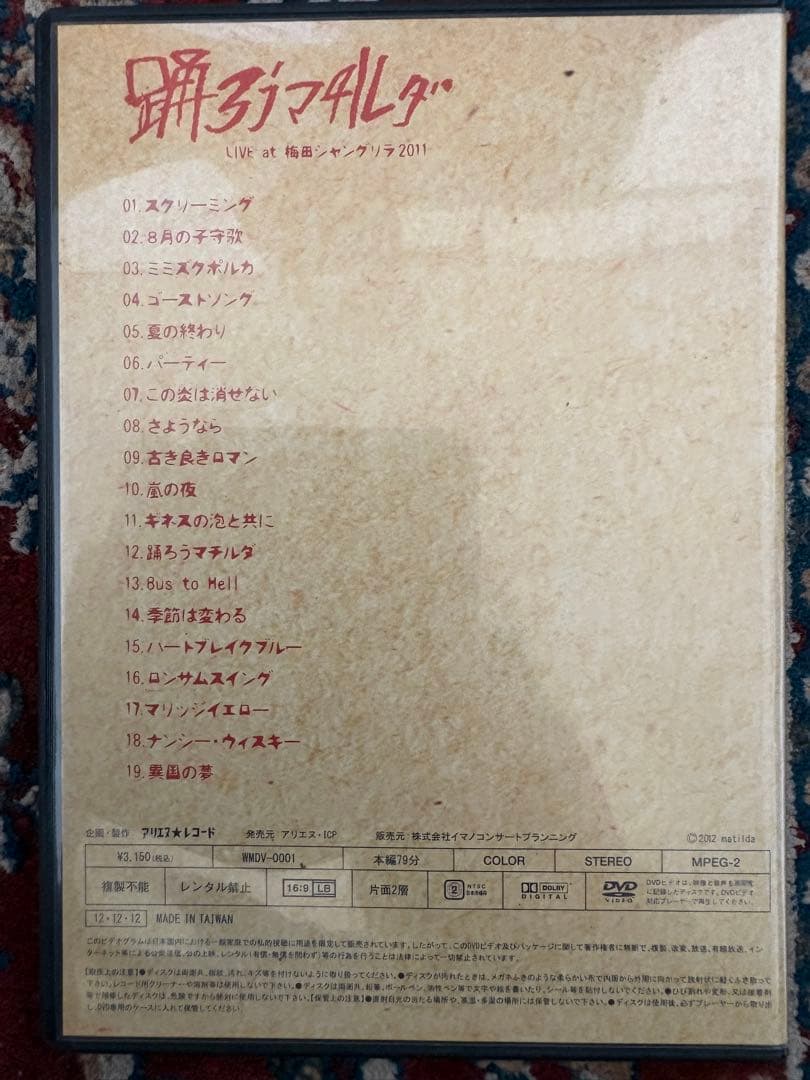 踊ろうマチルダ
LIVE at 梅田シャングリラ2011
01.スクリーミング
02.8月の子守歌
03.ミミズクポルカ
04.ゴーストソング
05.夏の終わり
06.パーティー
07.この炎は消せない
08.さようなら
09.古き良きロマン
10.嵐の夜
11.ギネスの泡と共に
12.踊ろうマチルダ
13.Bus to Hell
14.季節は変わる
15.ハートブレイクブルー
16.ロンサムスイング
17.マリッジイエロー
18.ナンシー・ウィスキー
19.異国の夢
企画・製作 アリエヌ★レコード 発売元 アリエヌ・ICP 販売元:株式会社イマノコンサートプランニング ©2012 matilda
¥3,150(税込) WMDV-0001 本編79分 COLOR STEREO MPEG-2
複製不能 レンタル禁止 16:9 LB 片面2層 2 NTSC 日本市場向 DOLBY DIGITAL DVD VIDEO DVDビデオは、映像と音声を高密度に記録したディスクです。DVDビデオ対応プレーヤーで再生してください。
12・12・12 MADE IN TAIWAN
このビデオグラムは日本国内における一般家庭での私的視聴に用途を限定して販売されています。したがって、このDVDビデオ及びパッケージに関して著作権者に無断で、複製、改変、放送、有線放送、イン
ターネット等による公衆送信、公の上映、レンタル(有償・無償を問わず)等の行為を行うことは法律によって一切禁止されています。
【取扱上の注意】●ディスクは両面共、指紋、汚れ、キズ等を付けないように取り扱ってください。●ディスクが汚れたときは、メガネふきのような柔らかい布で内周から外周に向かって放射状に軽くふき取って
下さい。レコード用クリーナーや溶剤等は使用しないで下さい。●ディスクは両面共、鉛筆、ボールペン、油性ペン等で文字や絵を書いたり、シール等を貼付しないでください。●ひび割れや変形、又は接着剤
等で補修したディスクは、危険ですから絶対に使用しないで下さい。【保管上の注意】●直射日光の当たる場所や、高温・多湿の場所には保管しないで下さい。●ディスクは使用後、必ずプレーヤーから取り出
し、DVD専用のケースに入れて保管してください。